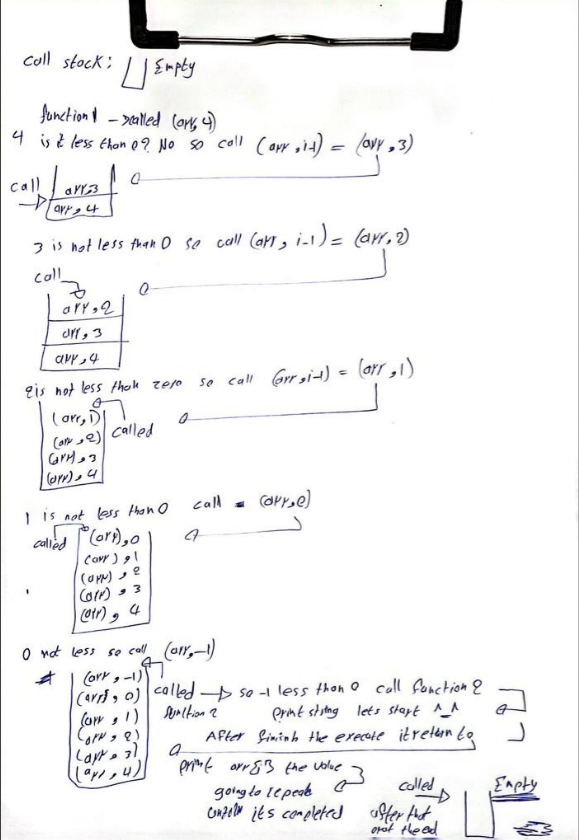 call stack: Empty
function1 → called (arr, 4)
4 is i less than 0? No so call (arr, i-1) = (arr, 3)
call
arr, 3
arr, 4
3 is not less than 0 so call (arr, i-1) = (arr, 2)
call
arr, 2
arr, 3
arr, 4
2 is not less than zero so call (arr, i-1) = (arr, 1)
(arr, 1)
(arr, 2) called
(arr), 3
(arr), 4
1 is not less than 0 call = (arr, 0)
called (arr), 0
(arr), 1
(arr), 2
(arr), 3
(arr), 4
0 not less so call (arr, -1)
(arr, -1)
(arr, 0) called → so -1 less than 0 call function 2
(arr, 1) function 2 print string lets start ^_^
(arr, 2) After finish the execute it return to
(arr, 3)
(arr, 4) print the value
going to repeat called Empty
its completed after that